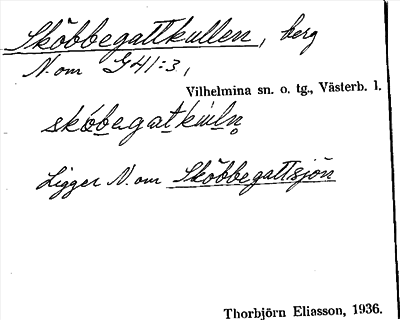 Sköbbegattkullen, berg
N. om G41:3,
Vilhelmina sn. o. tg., Västerb. l.
Ligger N. om Sköbbegattsjön
Thorbjörn Eliasson, 1936.